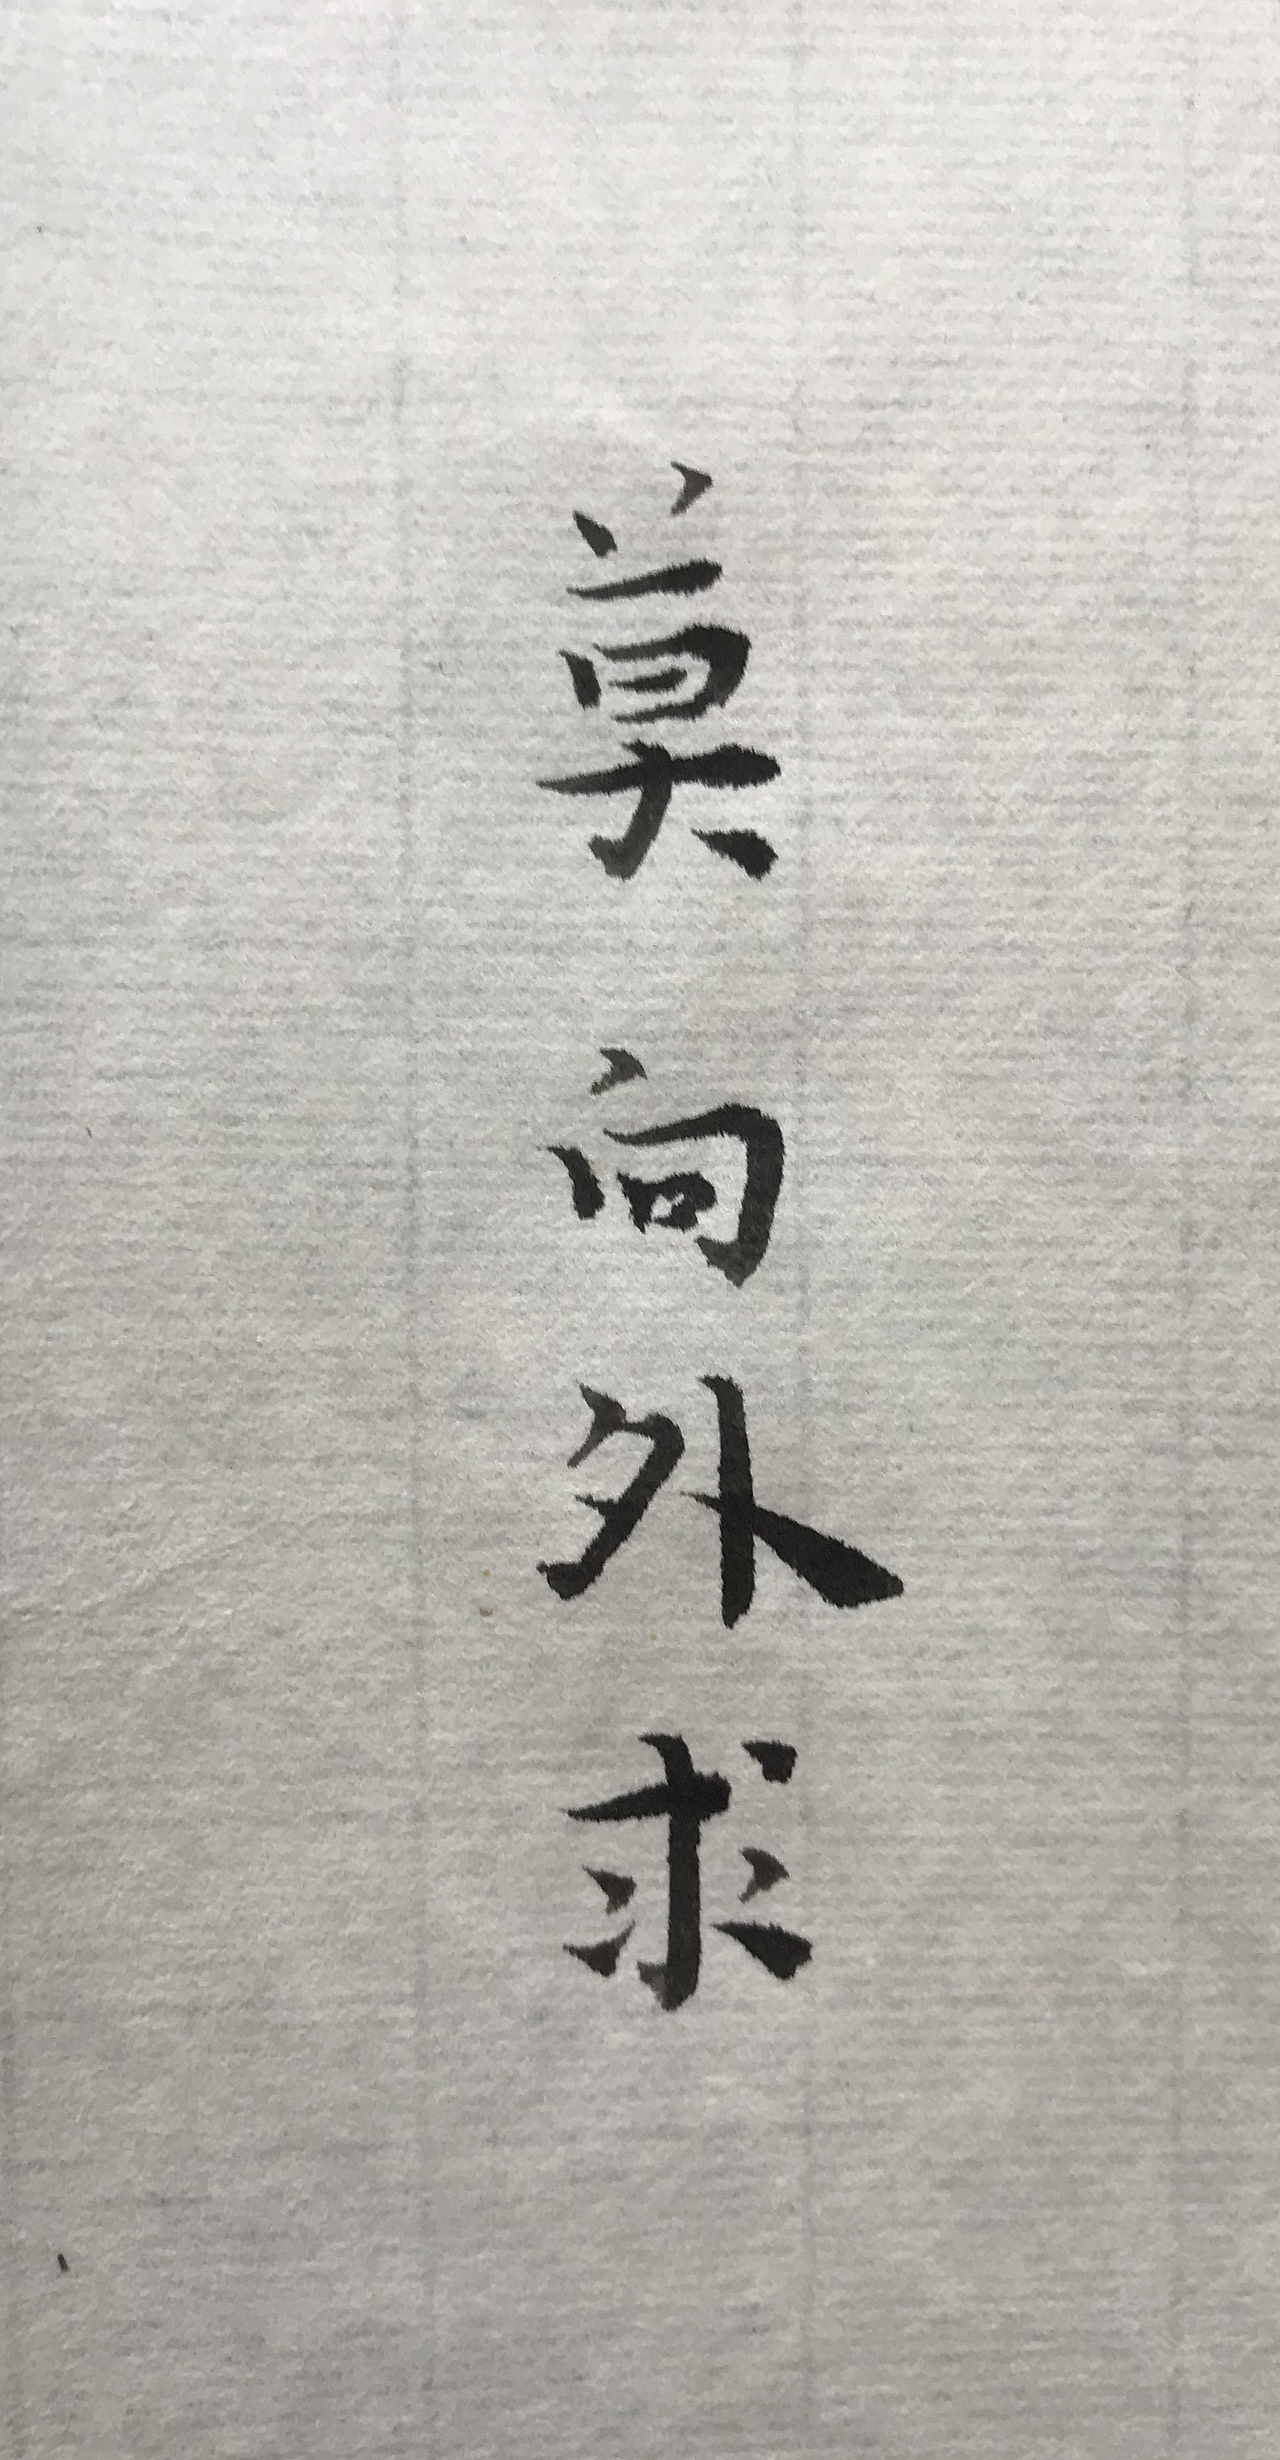 莫向外求